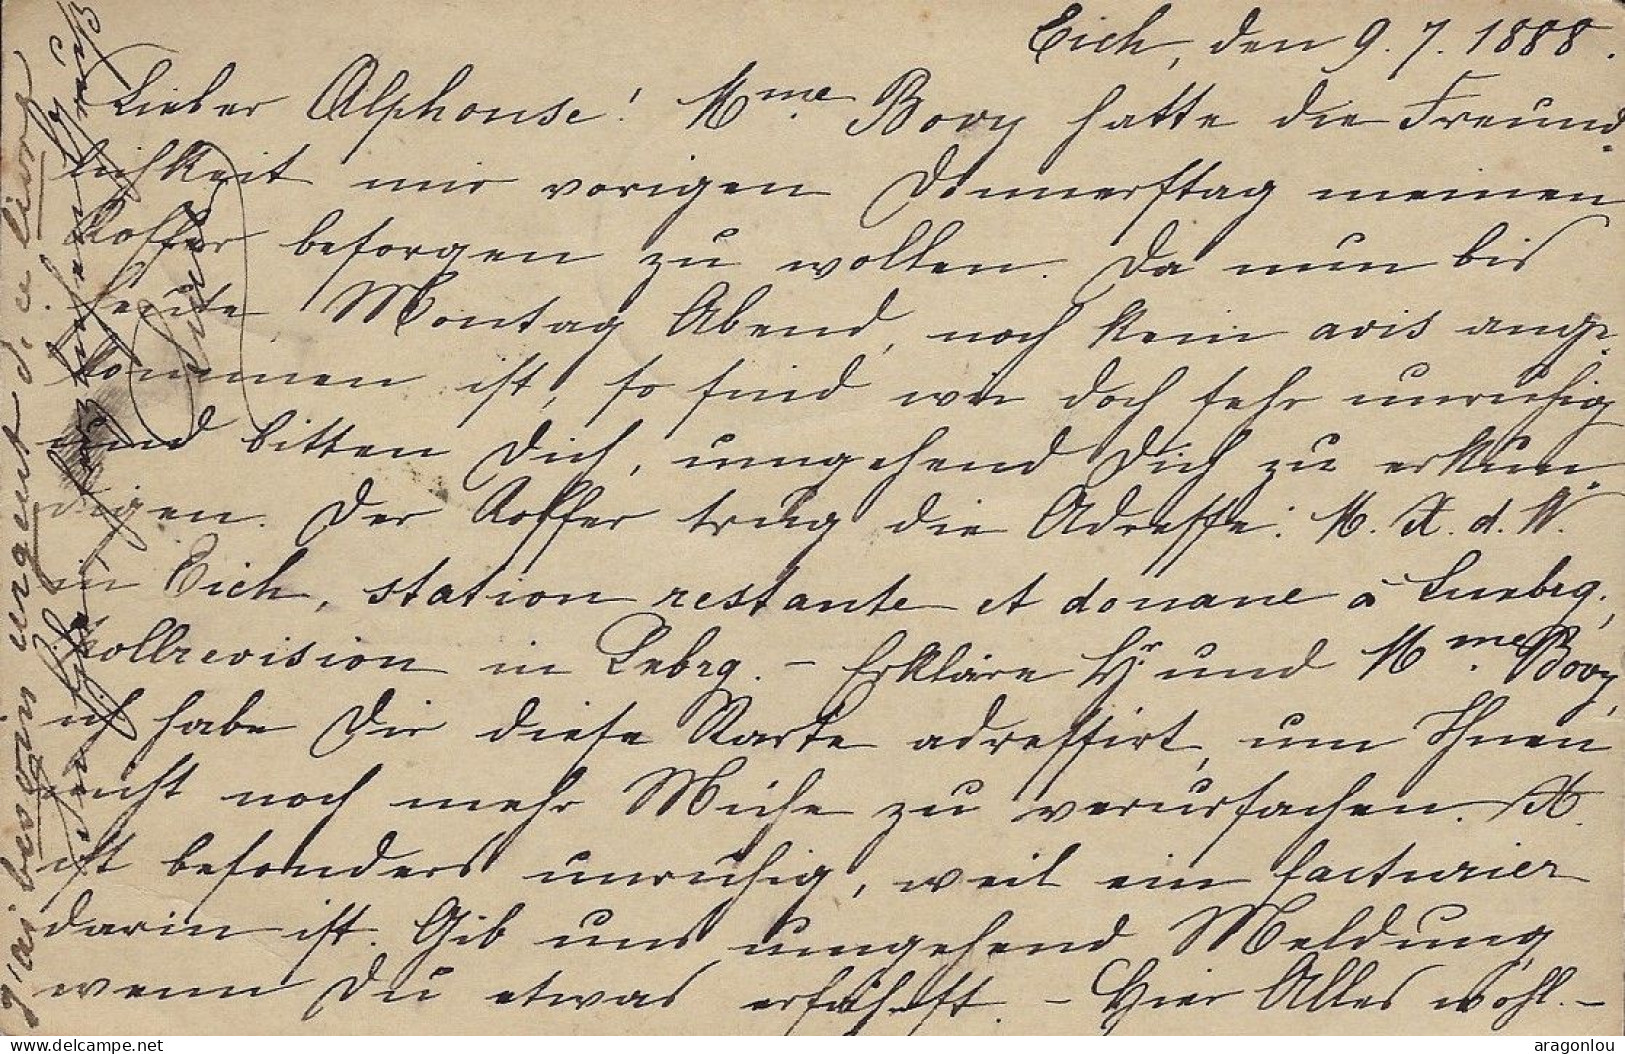 Eich, den 9. 7. 1888.
Lieber Alphonse! Mme. Bovy hatte die Freund-
lichkeit mir vorigen Donnerstag meinen
Koffer besorgen zu wollen. Da nun bis
heute, Montag Abend, noch kein avis ange-
kommen ist, so sind wir doch sehr unruhig
und bitten Dich, umgehend Dich zu erkun-
digen. Der Koffer trug die Adresse: M. X. d. W.
in Eich, station restante et douane à Luxbrg.,
Zollrevision in Lxbrg. – Erkläre Hr. und Mme. Bovy,
ich habe Dir diese Karte adressirt, um Ihnen
nicht noch mehr Mühe zu verursachen. X.
ist besonders unruhig, weil ein facturier
darin ist. Gib uns umgehend Meldung,
wenn Du etwas erfährst. – Hier Alles wohl. –
j'ai besoin urgent d. ce livre